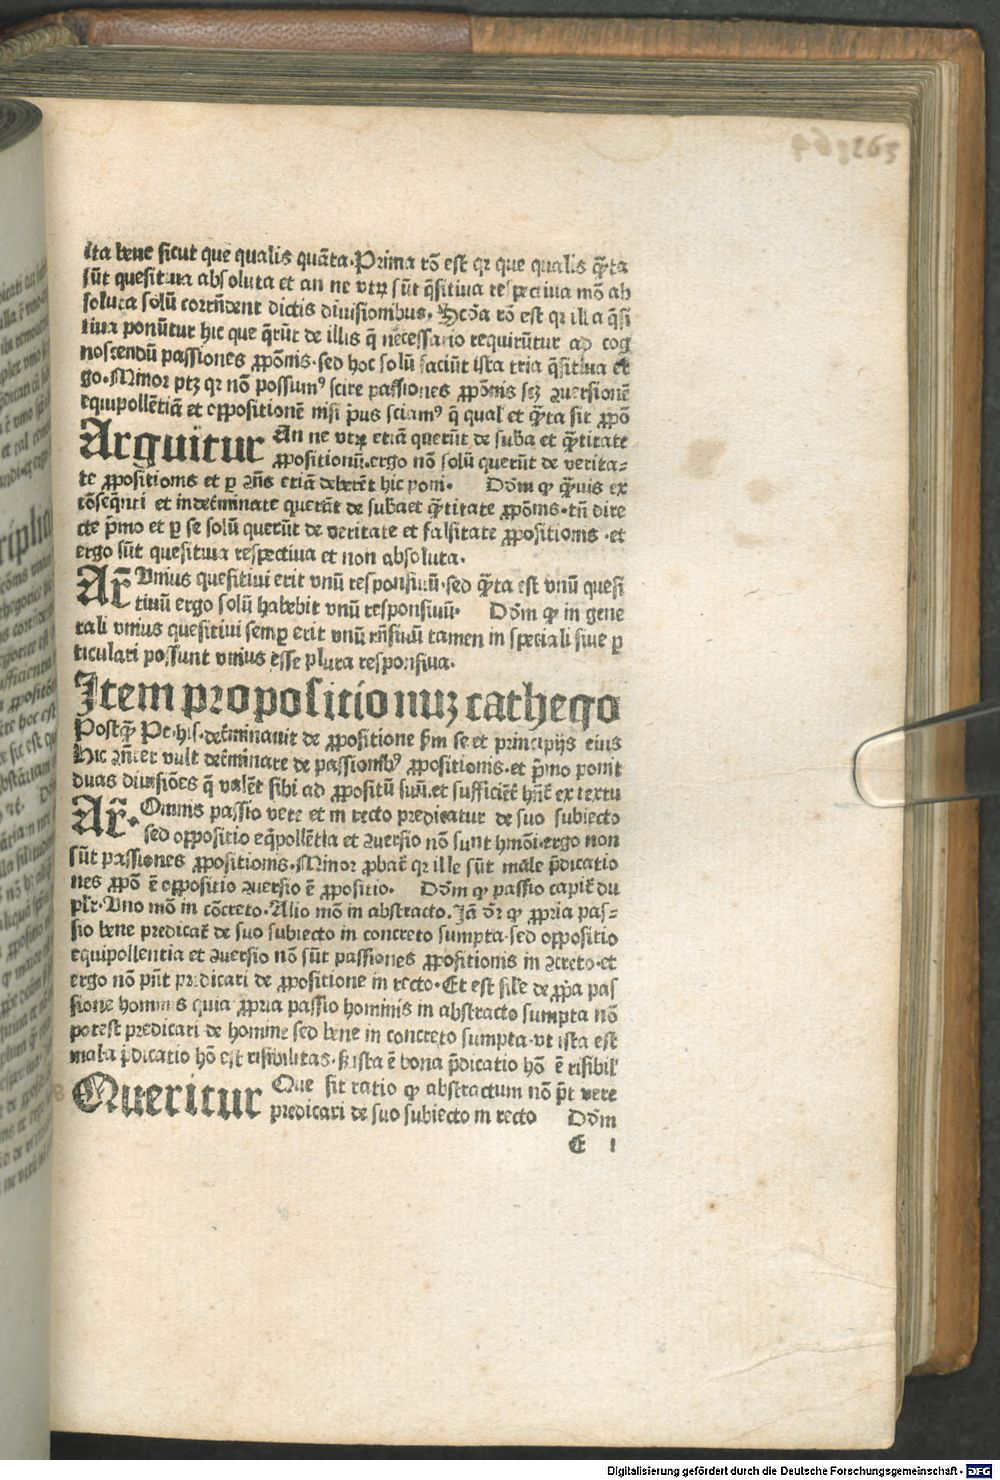 263
ita bene sicut que qualis quāta. Prima rō est qꝛ que qualis q̄ta
sūt quesitiua absoluta et an ne vtꝝ sūt q̄sitiua respectiua mō ab
soluta solū corrn̄dent dictis diuisionibus. Scd̄a rō est qꝛ illa q̄si
tiua ponūtur hic que q̄rūt de illis q̄ necessario requirūtur ad cog
noscendū passiones ꝓpōnis. sed hoc solū faciūt ista tria q̄sitiua et
go. Minor ptꝫ qꝛ nō possumꝰ scire passiones ꝓpōnis scꝫ ꝯuersionē
equipollētiā et oppositionē nisi p̄us sciamꝰ q̄ qual et q̄ta sit ꝓpō
Arguitur An ne vtꝝ etiā querūt de sub̄a et q̄titate
ꝓpositionū. ergo nō solū querūt de verita-
te ꝓpositionis et ꝑ ꝯn̄s etiā deberēt hic poni. Dōm ꝙ q̄uis ex
cōseq̄nti et indetīminate querūt de sub̄a et q̄titate ꝓpōnis. tn̄ dire
cte p̄mo et ꝑ se solū querūt de veritate et falsitate ꝓpositionis. et
ergo sūt quesitiua respectiua et non absoluta.
Ar̄ Vnius quesitiui erit vnū responsiuū. sed q̄ta est vnū quesi
tiuū ergo solū habebit vnū responsiuū. Dōm ꝙ in gene
rali vnius quesitiui semꝑ erit vnū rn̄siuū tamen in speciali siue ꝑ
ticulari possunt vnius esse plura responsiua.
Item propositionuꝫ cathego
Postq̄ Pe. his. det̄minauit de ꝓpositione ẜm se et principijs eius
Hic ꝯn̄ter vult det̄minare de passionibꝰ ꝓpositionis. et p̄mo ponit
duas diuisiōes q̄ valēt sibi ad ꝓpositū suū. et sufficiēt̄ hn̄t̄ ex textu
Ar̄. Omnis passio vere et in recto predicatur de suo subiecto
sed oppositio eq̄pollētia et ꝯuersio nō sunt hmōi. ergo non
sūt passiones ꝓpositionis. Minor ꝓbat̄ qꝛ ille sūt male p̄dicatio
nes ꝓpō ē oppositio ꝯuersio ē ꝓpositio. Dōm ꝙ passio capit̄ du
plr̄. Vno mō in cōcreto. Alio mō in abstracto. Jā dr̄ ꝙ ꝓpria pas-
sio bene predicat̄ de suo subiecto in concreto sumpta. sed oppositio
equipollentia et ꝯuersio nō sūt passiones ꝓpositionis in ꝯcreto. et
ergo nō pn̄t predicari de ꝓpositione in recto. Et est sil̄e de ꝓp̄a pas
sione hominis quia ꝓpria passio hominis in abstracto sumpta nō
potest predicari de homine sed bene in concreto sumpta. vt ista est
mala p̄dicatio hō est risibilitas. sꝫ ista ē bona p̄dicatio hō ē risibil'
Queritur Que sit ratio ꝙ abstractum nō p̄t vere
predicari de suo subiecto in recto Dōm
E 1
Digitalisierung gefördert durch die Deutsche Forschungsgemeinschaft - DFG